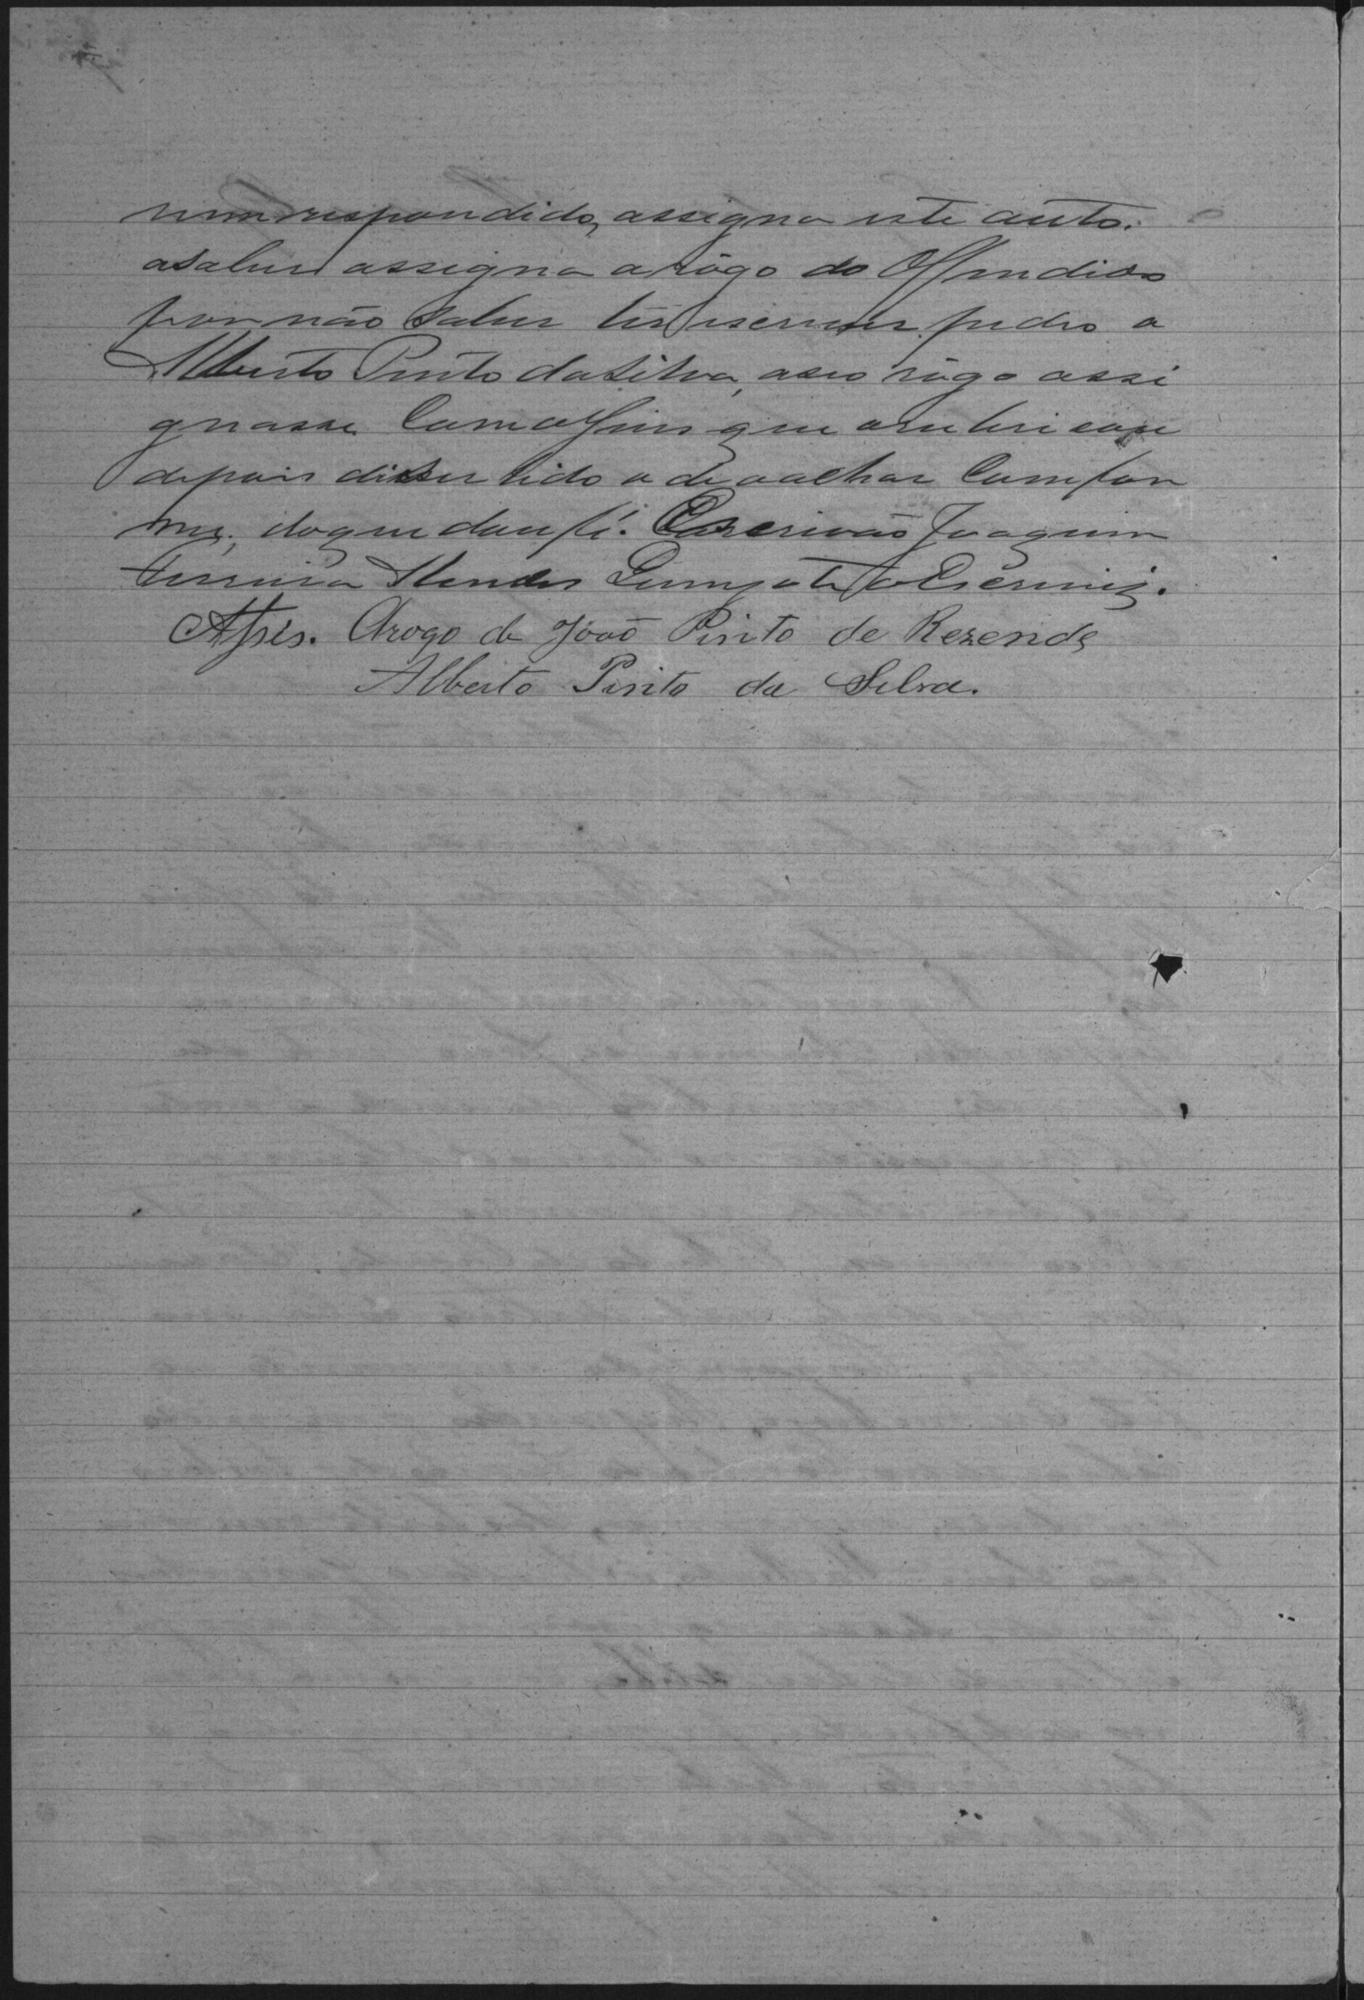 nem respondido, assigna este auto.
a saber assigna a rôgo do Offendido
por não saber lêr escrever pedio a
Alberto Pinto da Silva, a seo rôgo assi
gnasse com o Juiz que o rubricou
depois de ser lido e de o achar confor
me, do que dou fé. Escrivão Joaquim
Ferreira Mendes o escrevi.
Assis. Arogo de João Pinto de Rezende
Alberto Pinto da Silva.